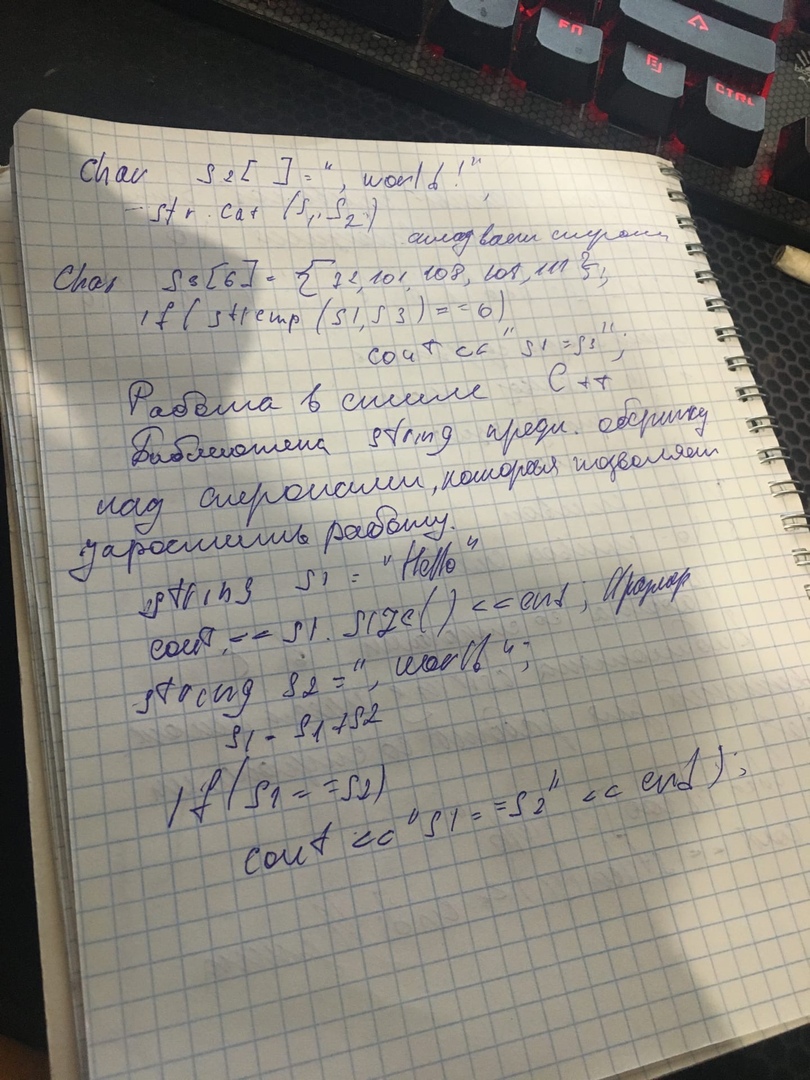 Char S2[ ]=", world!";
- str.cat (S1, S2)
складывает строки
Char S3[6] = {72, 101, 108, 108, 111};
if( strcmp (S1, S3) == 0)
cout << "S1 = S3";
Работа в стиле C++
Библиотека string предл. обертку
над строками, которая позволяет
упростить работу.
string S1 = "Hello"
cout << S1. size() << endl; //размер
string S2 = ", world";
S1 = S1 + S2
if (S1 == S2)
cout << "S1 == S2" << endl;
FN
CTRL